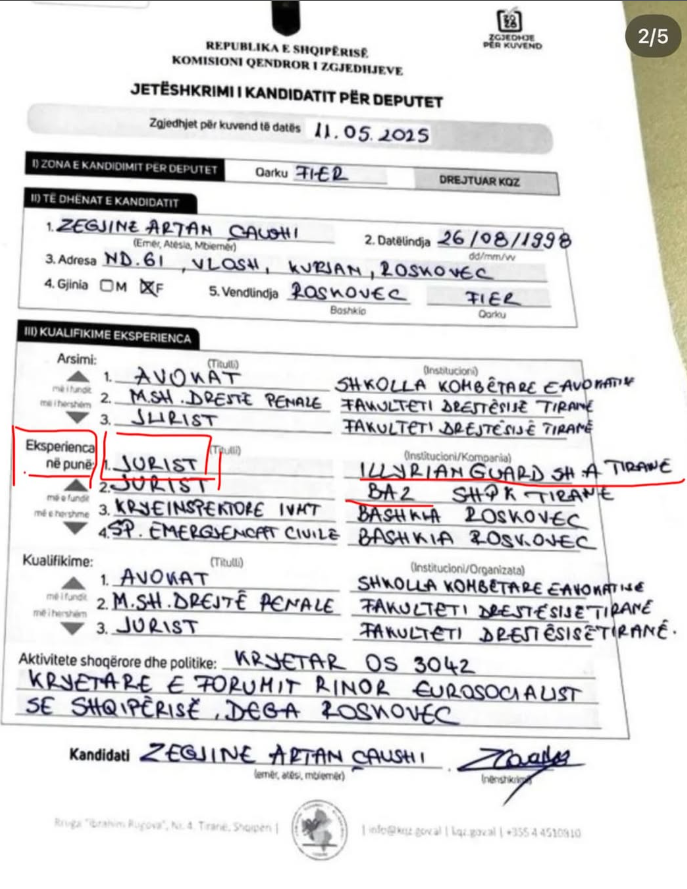 2/5
ZGJEDHJE
PËR KUVEND
REPUBLIKA E SHQIPËRISË
KOMISIONI QENDROR I ZGJEDHJEVE
JETËSHKRIMI I KANDIDATIT PËR DEPUTET
Zgjedhjet për kuvend të datës 11.05.2025
I) ZONA E KANDIDIMIT PËR DEPUTET Qarku FIER DREJTUAR KQZ
II) TË DHËNAT E KANDIDATIT
1. ZEGJINE ARTAN ÇAUSHI 2. Datëlindja 26/08/1998
(Emër, Atësia, Mbiemër) dd/mm/vv
3. Adresa ND.61, VLOSH, KURJAN, ROSKOVEC
4. Gjinia M F 5. Vendlindja ROSKOVEC FIER
Bashkia Qarku
III) KUALIFIKIME EKSPERIENCA
Arsimi: (Titulli) (Institucioni)
1. AVOKAT SHKOLLA KOMBËTARE E AVOKATISË
më i fundit 2. M.SH. DREJTË PENALE FAKULTETI DREJTËSISË TIRANË
më i hershëm 3. JURIST FAKULTETI DREJTËSISË TIRANË
Eksperienca (Titulli) (Institucioni/Kompania)
në punë: 1. JURIST ILLYRIAN GUARD SH.A TIRANË
2. JURIST BA2 SHPK TIRANË
më e fundit 3. KRYEINSPEKTORE IVMT BASHKIA ROSKOVEC
më e hershme 4. SP. EMERGJENCAT CIVILE BASHKIA ROSKOVEC
Kualifikime: (Titulli) (Institucioni/Organizata)
1. AVOKAT SHKOLLA KOMBËTARE E AVOKATISË
më i fundit 2. M.SH. DREJTË PENALE FAKULTETI DREJTËSISË TIRANË
më i hershëm 3. JURIST FAKULTETI DREJTËSISË TIRANË.
Aktivitete shoqërore dhe politike: KRYETAR OS 3042
KRYETARE E FORUMIT RINOR EUROSOCIALIST
SE SHQIPËRISË, DEGA ROSKOVEC
Kandidati ZEGJINE ARTAN ÇAUSHI.
(emër, atësi, mbiemër) (nënshkrimi)
Rruga "Ibrahim Rugova", Nr. 4, Tiranë, Shqipëri | | info@kqz.gov.al | kqz.gov.al | +355 4 4510910